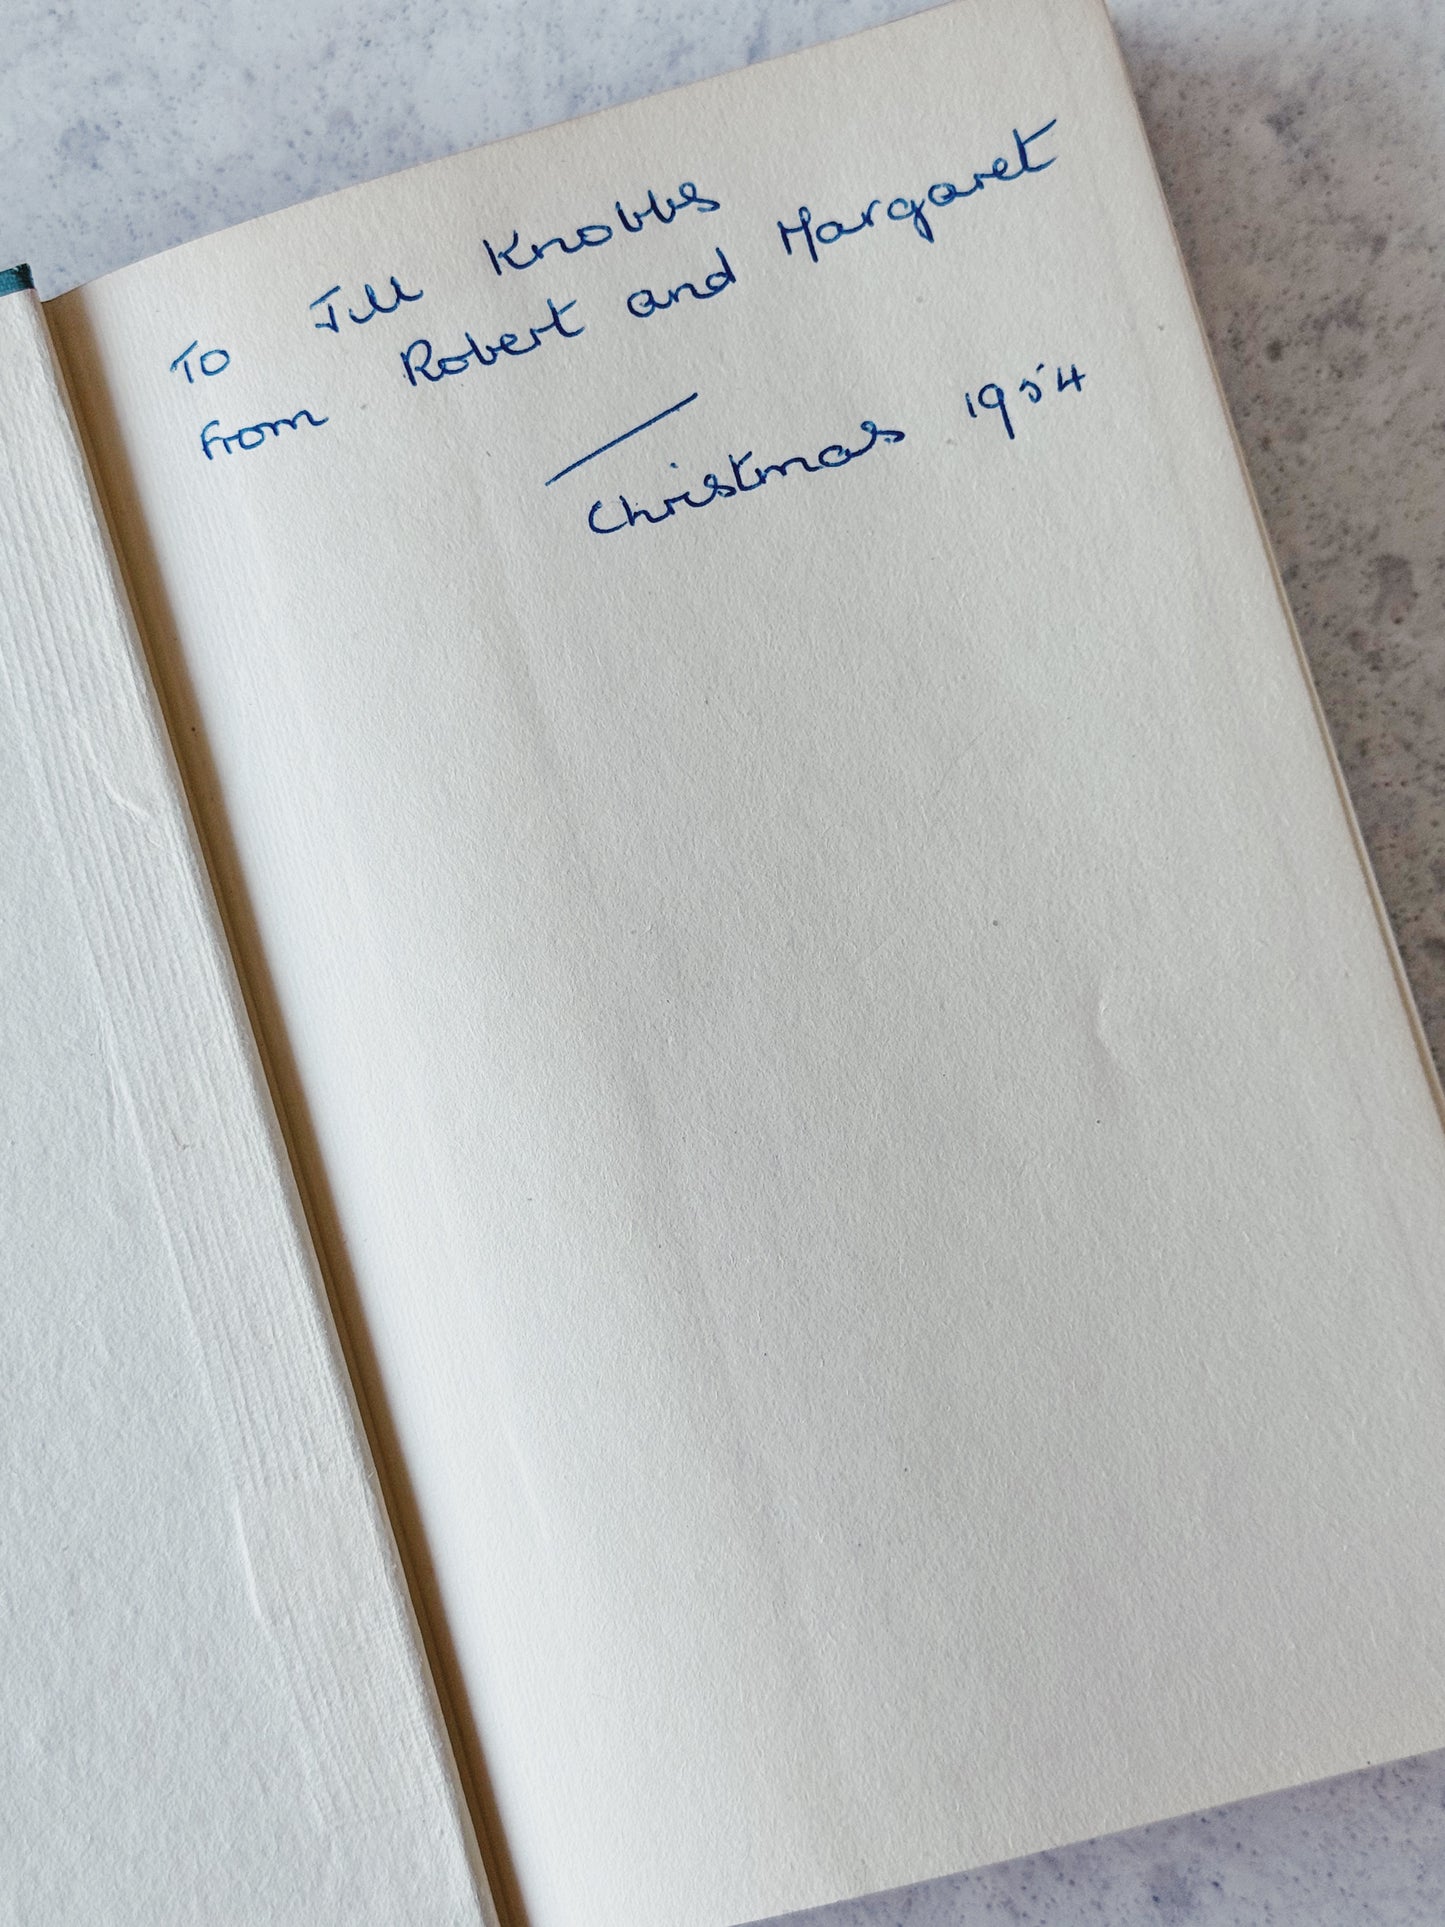 To Jill Knobbs
From Robert and Margaret
Christmas 1954